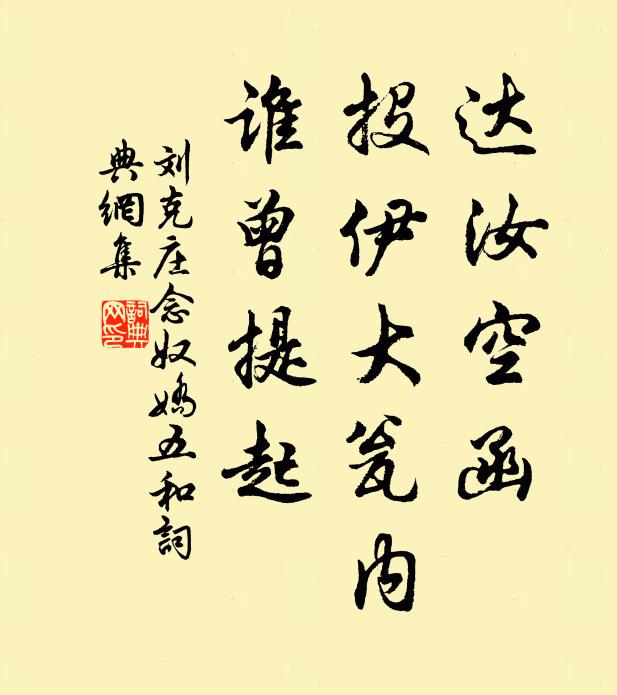 达汝空函
投伊大瓮内
谁曾提起
刘克庄念奴娇五和词
典網集
詞典
网印